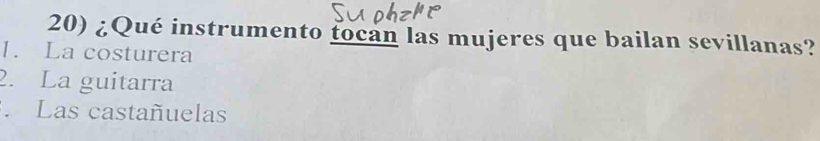 20) ¿Qué instrumento tocan las mujeres que bailan sevillanas?
1. La costurera
2. La guitarra
. Las castañuelas